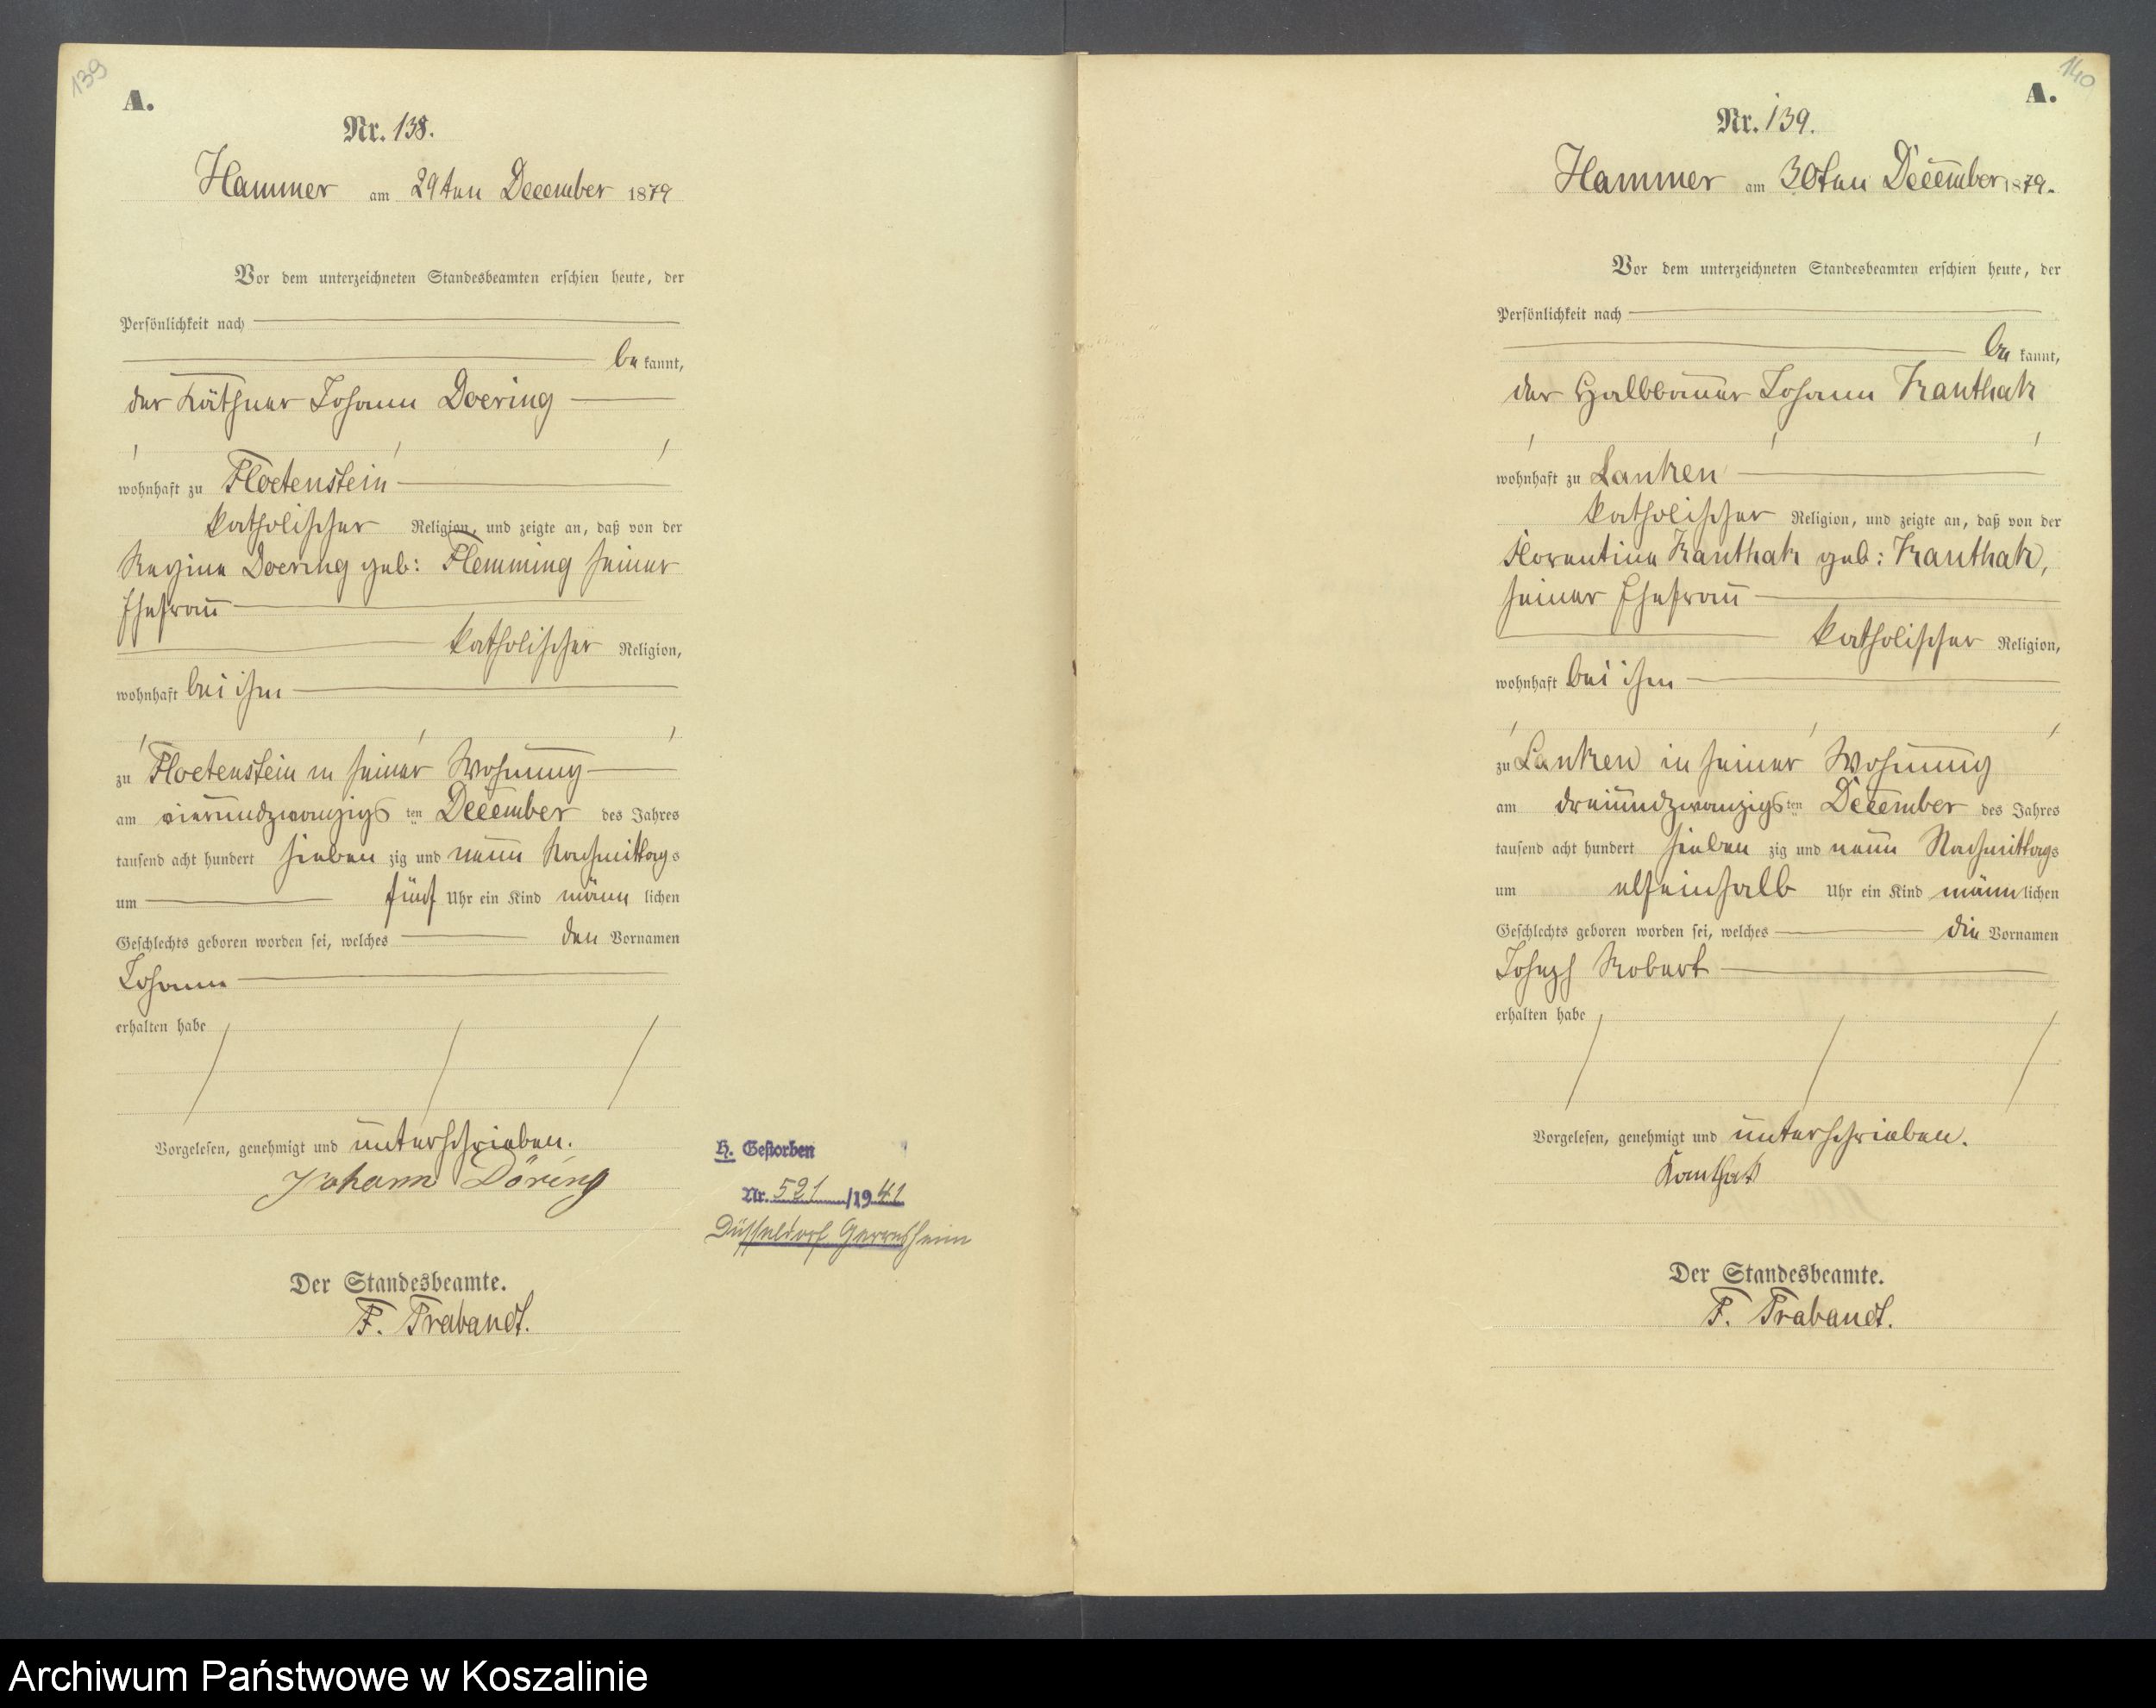 139
A.
Nr. 138.
Hammer am 29ten December 1879
Vor dem unterzeichneten Standesbeamten erschien heute, der
Persönlichkeit nach
bekannt,
der Käthner Johann Doering
wohnhaft zu Floetenstein
katholischer Religion, und zeigte an, daß von der
Regine Doering geb: Flemming seiner
Ehefrau
katholischer Religion,
wohnhaft bei ihm
zu Floetenstein in seiner Wohnung
am vierundzwanzigsten December des Jahres
tausend acht hundert siebenzig und neun Nachmittags
um fünf Uhr ein Kind männlichen
Geschlechts geboren worden sei, welches den Vornamen
Johann
erhalten habe
Vorgelesen, genehmigt und unterschrieben.
Johann Döring
Der Standesbeamte.
F. Trabandt.
H. Gestorben
Nr. 521/1941
Düsseldorf Gerresheim
140
A.
Nr. 139.
Hammer am 30ten December 1879.
Vor dem unterzeichneten Standesbeamten erschien heute, der
Persönlichkeit nach
bekannt,
der Halbbauer Johann Kanthak
wohnhaft zu Lanken
katholischer Religion, und zeigte an, daß von der
Florentine Kanthak geb: Kanthak,
seiner Ehefrau
katholischer Religion,
wohnhaft bei ihm
zu Lanken in seiner Wohnung
am dreiundzwanzigsten December des Jahres
tausend acht hundert siebenzig und neun Nachmittags
um elfeinhalb Uhr ein Kind männlichen
Geschlechts geboren worden sei, welches die Vornamen
Joseph Robert
erhalten habe
Vorgelesen, genehmigt und unterschrieben.
Kanthak
Der Standesbeamte.
F. Trabandt.
Archiwum Państwowe w Koszalinie